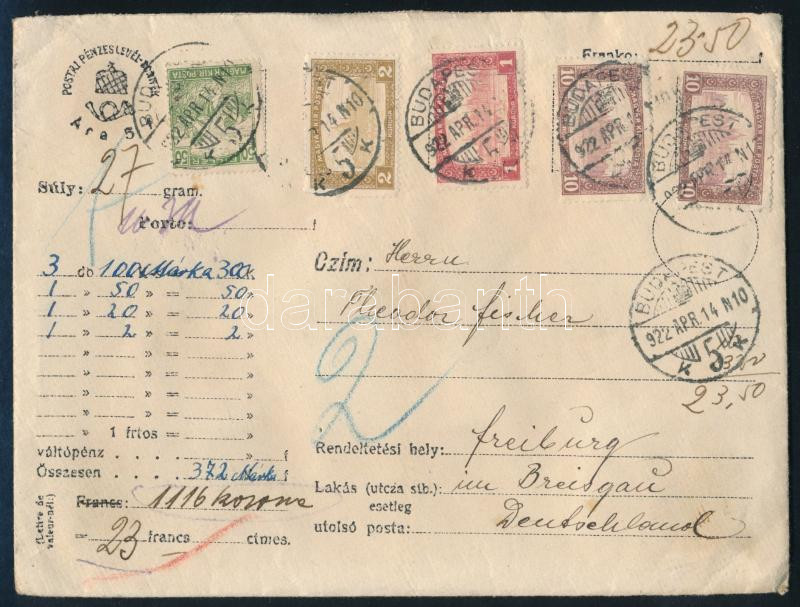 POSTAI PÉNZESLEVÉL-BORÍTÉK
Ára 5 f
BUDAPEST
922 APR 14 N10
5
K K
50
MAGYAR KIR. POSTA
2
1
10
10
23·50
Súly: 27 gram.
Porto:
3 db 100 Márka 300 K
1 » 50 » = 50 »
1 » 20 » = 20 »
1 » 2 » = 2 »
» » = »
» » = »
» » = »
» » = »
» 1 frtos = »
váltópénz f
Összesen 372 Márka f
Francs: 1116 korona
= 23 francs cimes.
(Lettre de valeur-nél:)
Czim: Herrn
Theodor Fischer
2
BUDAPEST
922 APR 14 N10
5
K K
23,50
Rendeltetési hely: Freiburg
Lakás (utcza stb.) im Breisgau
esetleg
utolsó posta: Deutschland
darabanth